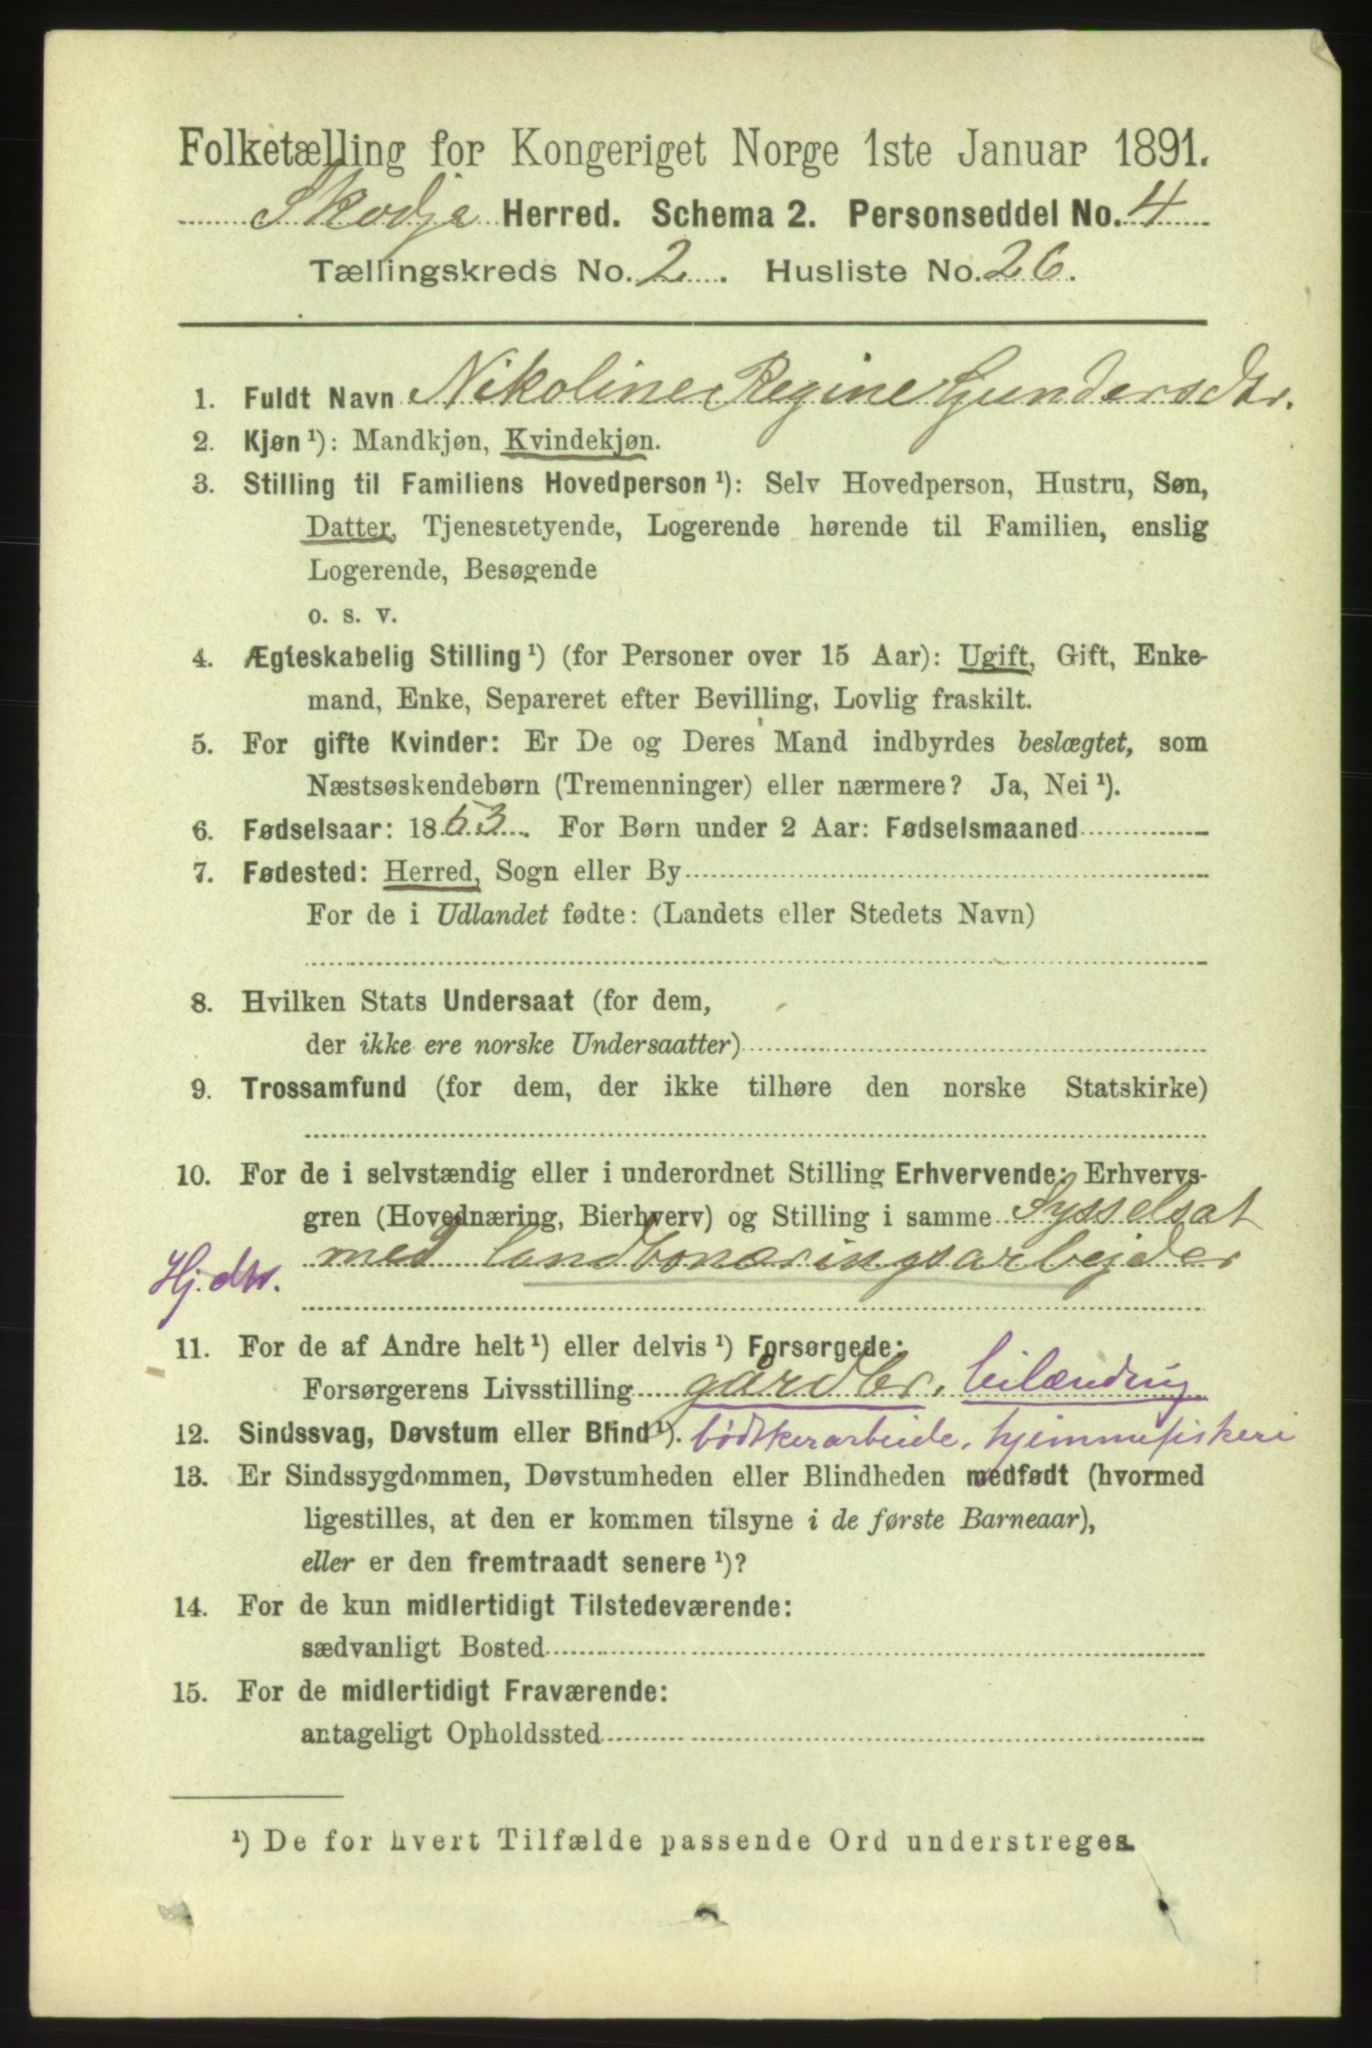 Folketælling for Kongeriget Norge 1ste Januar 1891.
Skodje Herred. Schema 2. Personseddel No. 4
Tællingskreds No. 2. Husliste No. 26.
1. Fuldt Navn Nikoline Regine Gundersdtr.
2. Kjøn ¹): Mandkjøn, Kvindekjøn.
3. Stilling til Familiens Hovedperson ¹): Selv Hovedperson, Hustru, Søn,
Datter, Tjenestetyende, Logerende hørende til Familien, enslig
Logerende, Besøgende
o. s. v.
4. Ægteskabelig Stilling ¹) (for Personer over 15 Aar): Ugift, Gift, Enke-
mand, Enke, Separeret efter Bevilling, Lovlig fraskilt.
5. For gifte Kvinder: Er De og Deres Mand indbyrdes beslægtet, som
Næstsøskendebørn (Tremenninger) eller nærmere? Ja, Nei ¹).
6. Fødselsaar: 1863. For Børn under 2 Aar: Fødselsmaaned
7. Fødested: Herred, Sogn eller By
For de i Udlandet fødte: (Landets eller Stedets Navn)
8. Hvilken Stats Undersaat (for dem,
der ikke ere norske Undersaatter)
9. Trossamfund (for dem, der ikke tilhøre den norske Statskirke)
10. For de i selvstændig eller i underordnet Stilling Erhvervende: Erhvervs-
gren (Hovednæring, Bierhverv) og Stilling i samme Sysselsat
med landbonæringsarbejder
Hj. dtr.
11. For de af Andre helt ¹) eller delvis ¹) Forsørgede:
Forsørgerens Livsstilling gårdbr. leilænding
12. Sindssvag, Døvstum eller Blind ¹). bødtkerarbeide, hjemmefiskeri
13. Er Sindssygdommen, Døvstumheden eller Blindheden medfødt (hvormed
ligestilles, at den er kommen tilsyne i de første Barneaar),
eller er den fremtraadt senere ¹)?
14. For de kun midlertidigt Tilstedeværende:
sædvanligt Bosted
15. For de midlertidigt Fraværende:
antageligt Opholdssted
¹) De for hvert Tilfælde passende Ord understreges.